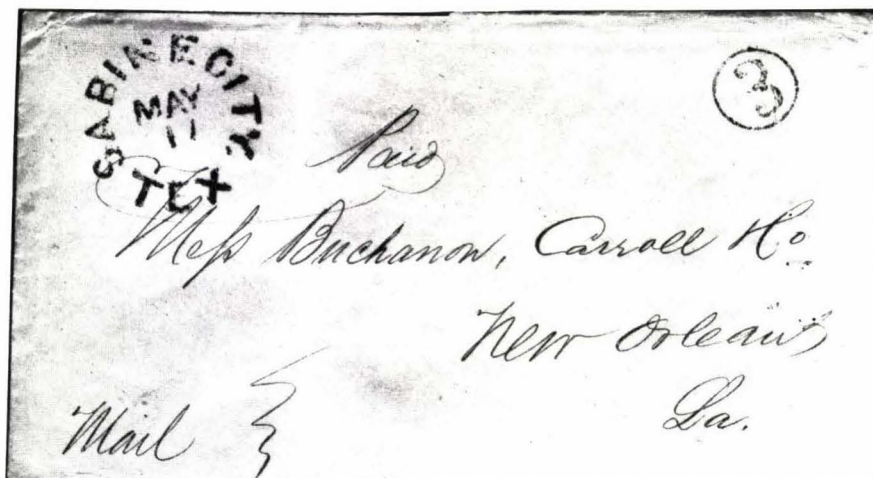 SABINE CITY.
MAY
11
TEX
3
Paid
Mess Buchanon, Carroll Ho
New Orleans
La.
Mail